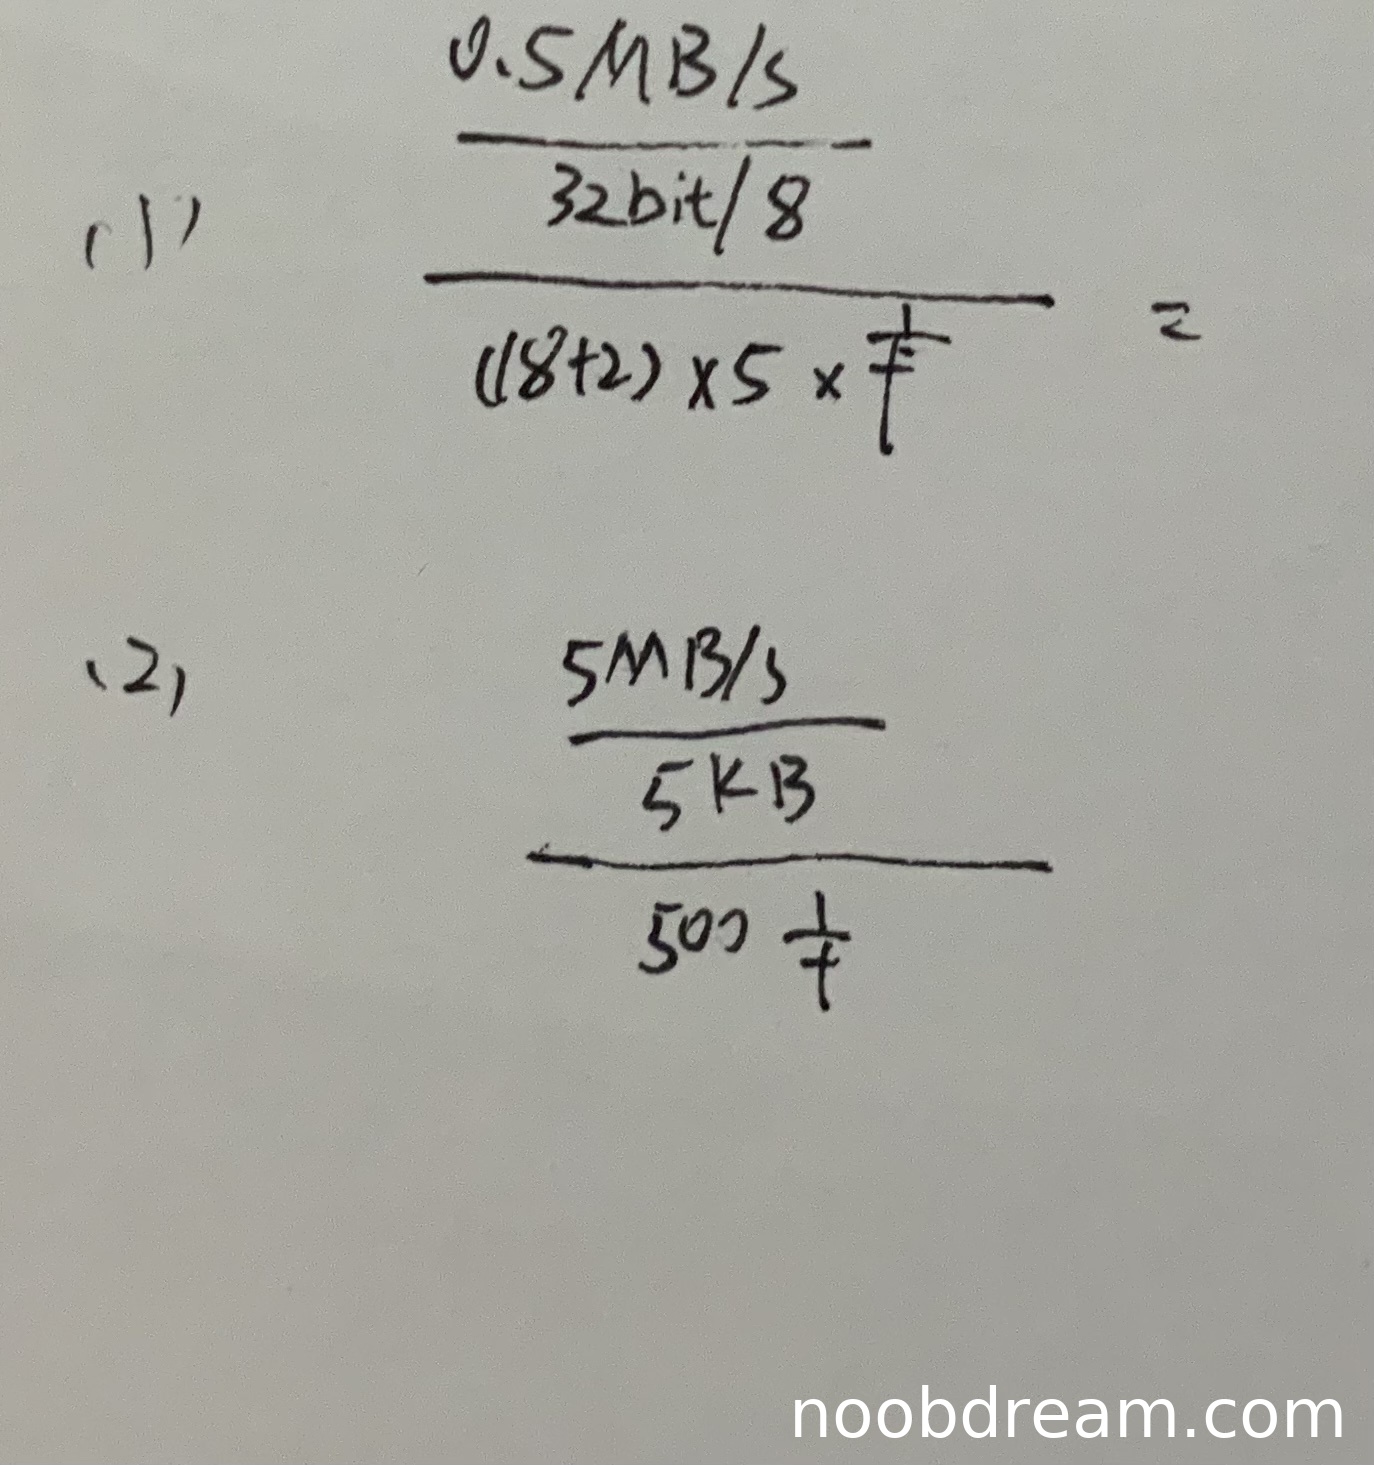 0.5MB/s
32bit/8
(1)
((18+2) x 5 x 1/f =
(2)
5MB/s
5KB
500 1/f
noobdream.com